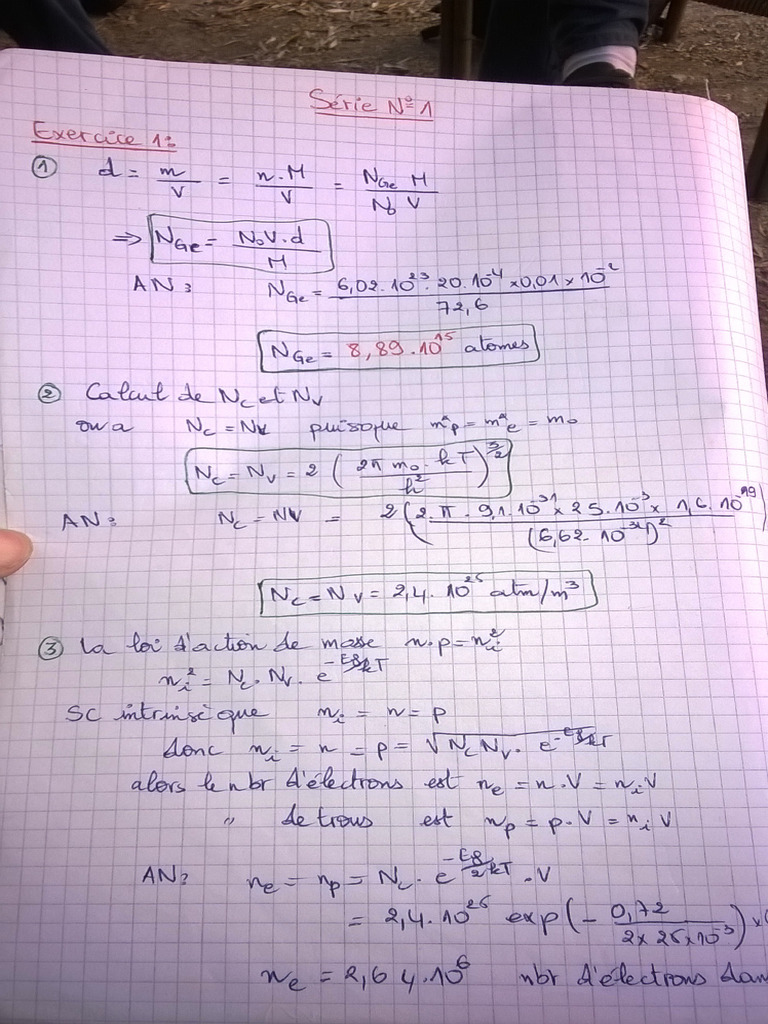 Série N°1
Exercice 1:
① d = m/V = n.M/V = N_Ge M / N_0 V
⇒ N_Ge = N_0 V.d / M
AN: N_Ge = 6,02.10^23 . 20.10^-4 × 0,01 × 10^-2 / 72,6
N_Ge = 8,89.10^15 atomes
② Calcul de N_c et N_V
on a N_c = N_V puisque m*_p = m*_e = m_0
N_c = N_V = 2 (2π m_0 . kT / h^2)^3/2
AN: N_c = N_V = 2 (2. π . 9,1.10^-31 × 25.10^-3 × 1,6.10^-19 / (6,62.10^-34)^2
N_c = N_V = 2,4.10^25 atm/m^3
③ La loi d'action de masse n.p = n_i^2
n_i^2 = N_c. N_V. e^-Eg/kT
SC intrinsèque n_i = n = p
donc n_i = n = p = √N_c N_V. e^-Eg/kT
alors le nbr d'électrons est n_e = n.V = n_i V
" de trous est n_p = p.V = n_i V
AN: n_e = n_p = N_c. e^-Eg/2kT .V
= 2,4.10^25 exp(- 0,72 / 2×25×10^-3) ×
n_e = 2,64.10^6 nbr d'électrons dan